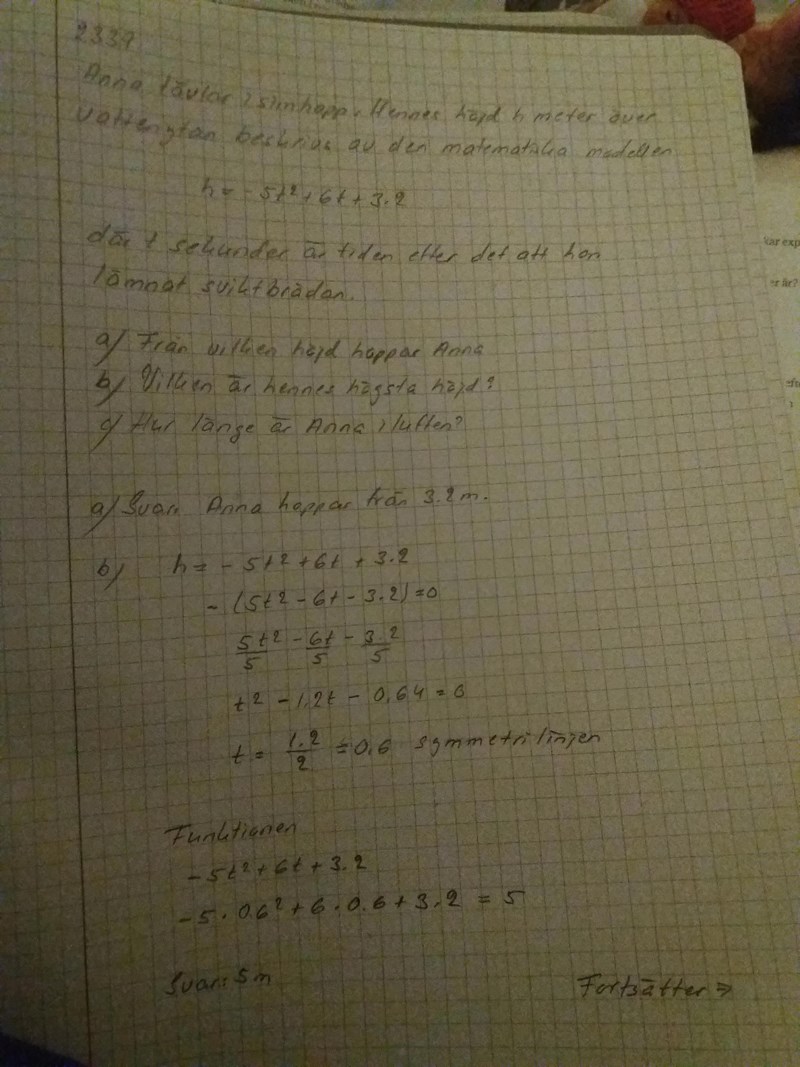 2337
Anna tävlar i simhopp. Hennes höjd h meter över
vattenytan beskrivs av den matematiska modellen
h = -5t² + 6t + 3.2
där t sekunder är tiden efter det att hon
lämnat sviktbrädan.
a) Från vilken höjd hoppar Anna
b) Vilken är hennes högsta höjd?
c) Hur länge är Anna i luften?
a) Svar: Anna hoppar från 3.2 m.
b) h = -5t² + 6t + 3.2
-(5t² - 6t - 3.2) = 0
5t²/5 - 6t/5 - 3.2/5
t² - 1,2t - 0,64 = 0
t = 1.2/2 = 0.6 symmetrilinjen
Funktionen
-5t² + 6t + 3.2
-5 · 0.6² + 6 · 0.6 + 3.2 = 5
Svar: 5 m
Fortsätter ⇒
kar exp
er är?